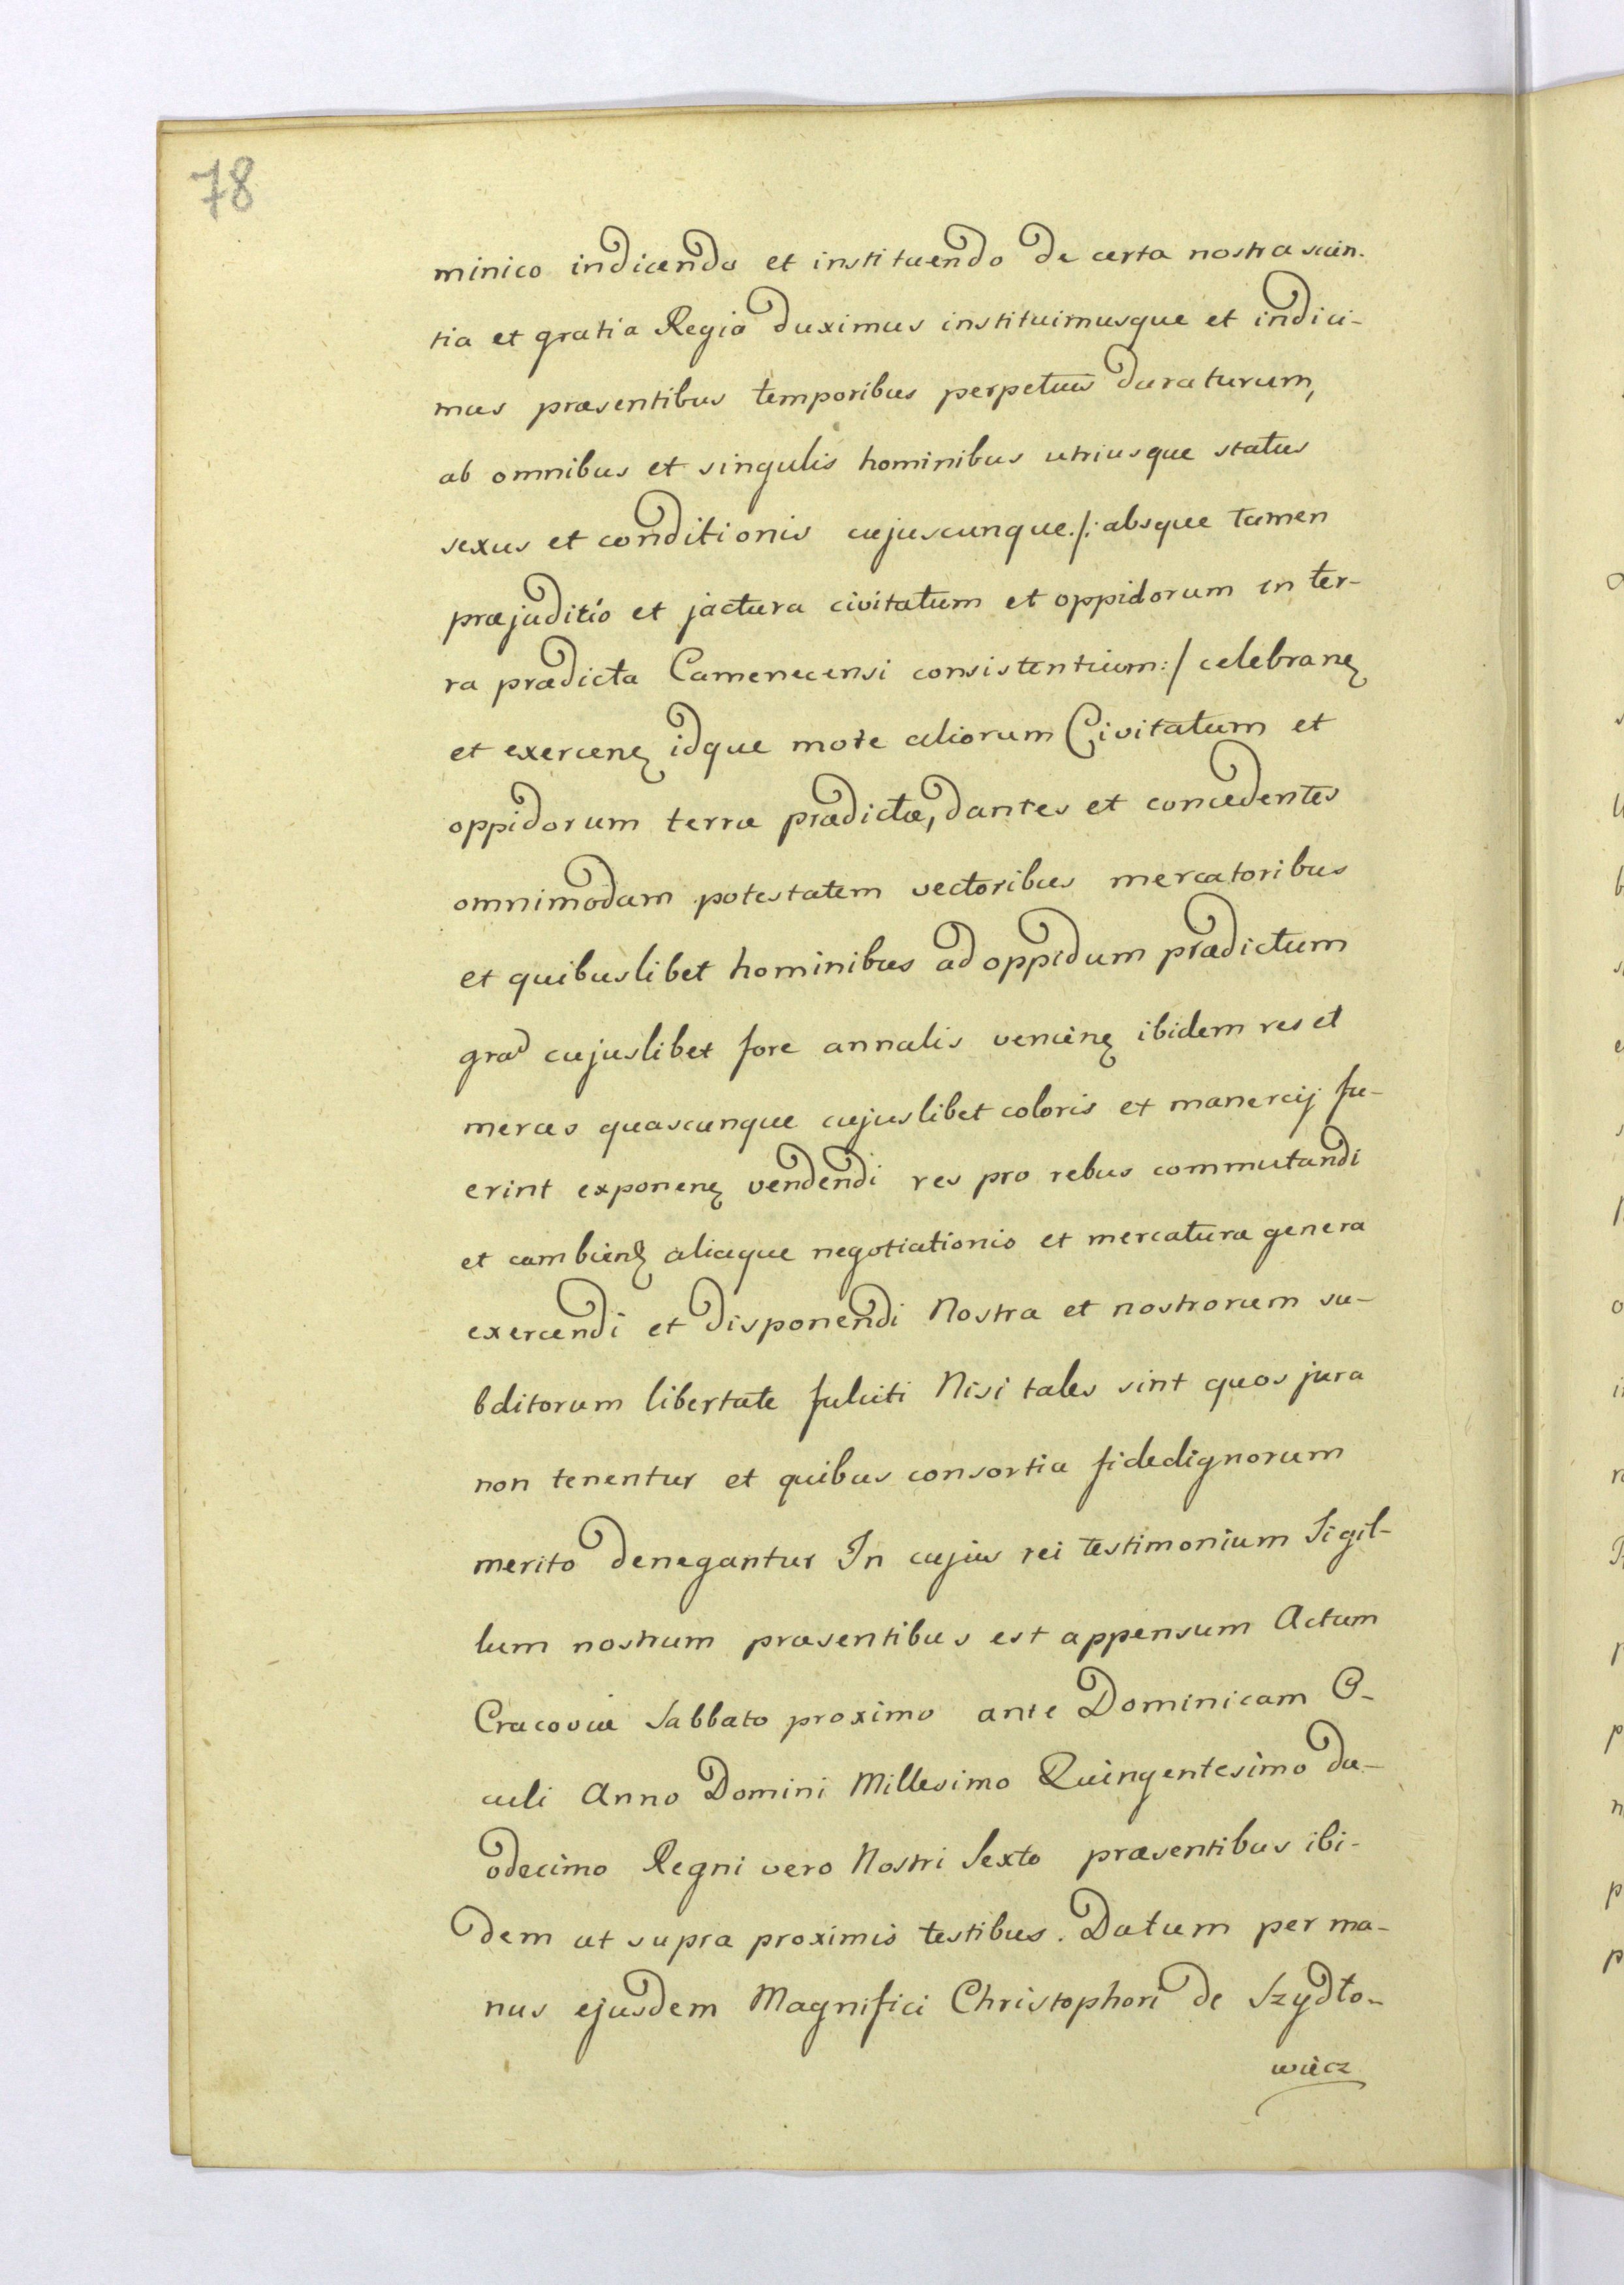 78
minico indicendo et instituendo de certa nostra scien-
tia et gratia Regia duximus instituimusque et indici-
mus præsentibus temporibus perpetuis duraturum,
ab omnibus et singulis hominibus utriusque status
sexus et conditionis cujuscunque ./: absque tamen
præjuditio et jactura civitatum et oppidorum in ter-
ra prædicta Camenecensi consistentium :/ celebranȩ
et exercenȩ idque more aliorum Civitatum et
oppidorum terræ prædictæ, dantes et concedentes
omnimodam potestatem vectoribus mercatoribus
et quibuslibet hominibus ad oppidum prædictum
grad cujuslibet fore annalis venienȩ ibidem res et
merces quascunque cujuslibet coloris et manercij fu-
erint exponenȩ vendendi res pro rebus commutandi
et cambienȩ aliaque negotiationis et mercaturæ genera
exercendi et disponendi Nostra et nostrorum su-
bditorum libertate fulciti Nisi tales sint quos jura
non tenentur et quibus consortia fidedignorum
merito denegantur In cujus rei testimonium Sigil-
lum nostrum præsentibus est appensum Actum
Cracoviæ Sabbato proximo ante Dominicam O-
culi Anno Domini Millesimo Quingentesimo du-
odecimo Regni vero Nostri Sexto præsentibus ibi-
dem ut supra proximis testibus. Datum per ma-
nus ejusdem Magnifici Christophori de Szydło-
wiecz